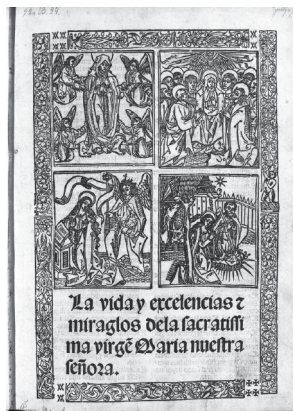 La vida y excelencias ⁊
miraglos dela sacratissi
ma virgẽ Maria nuestra
señora.